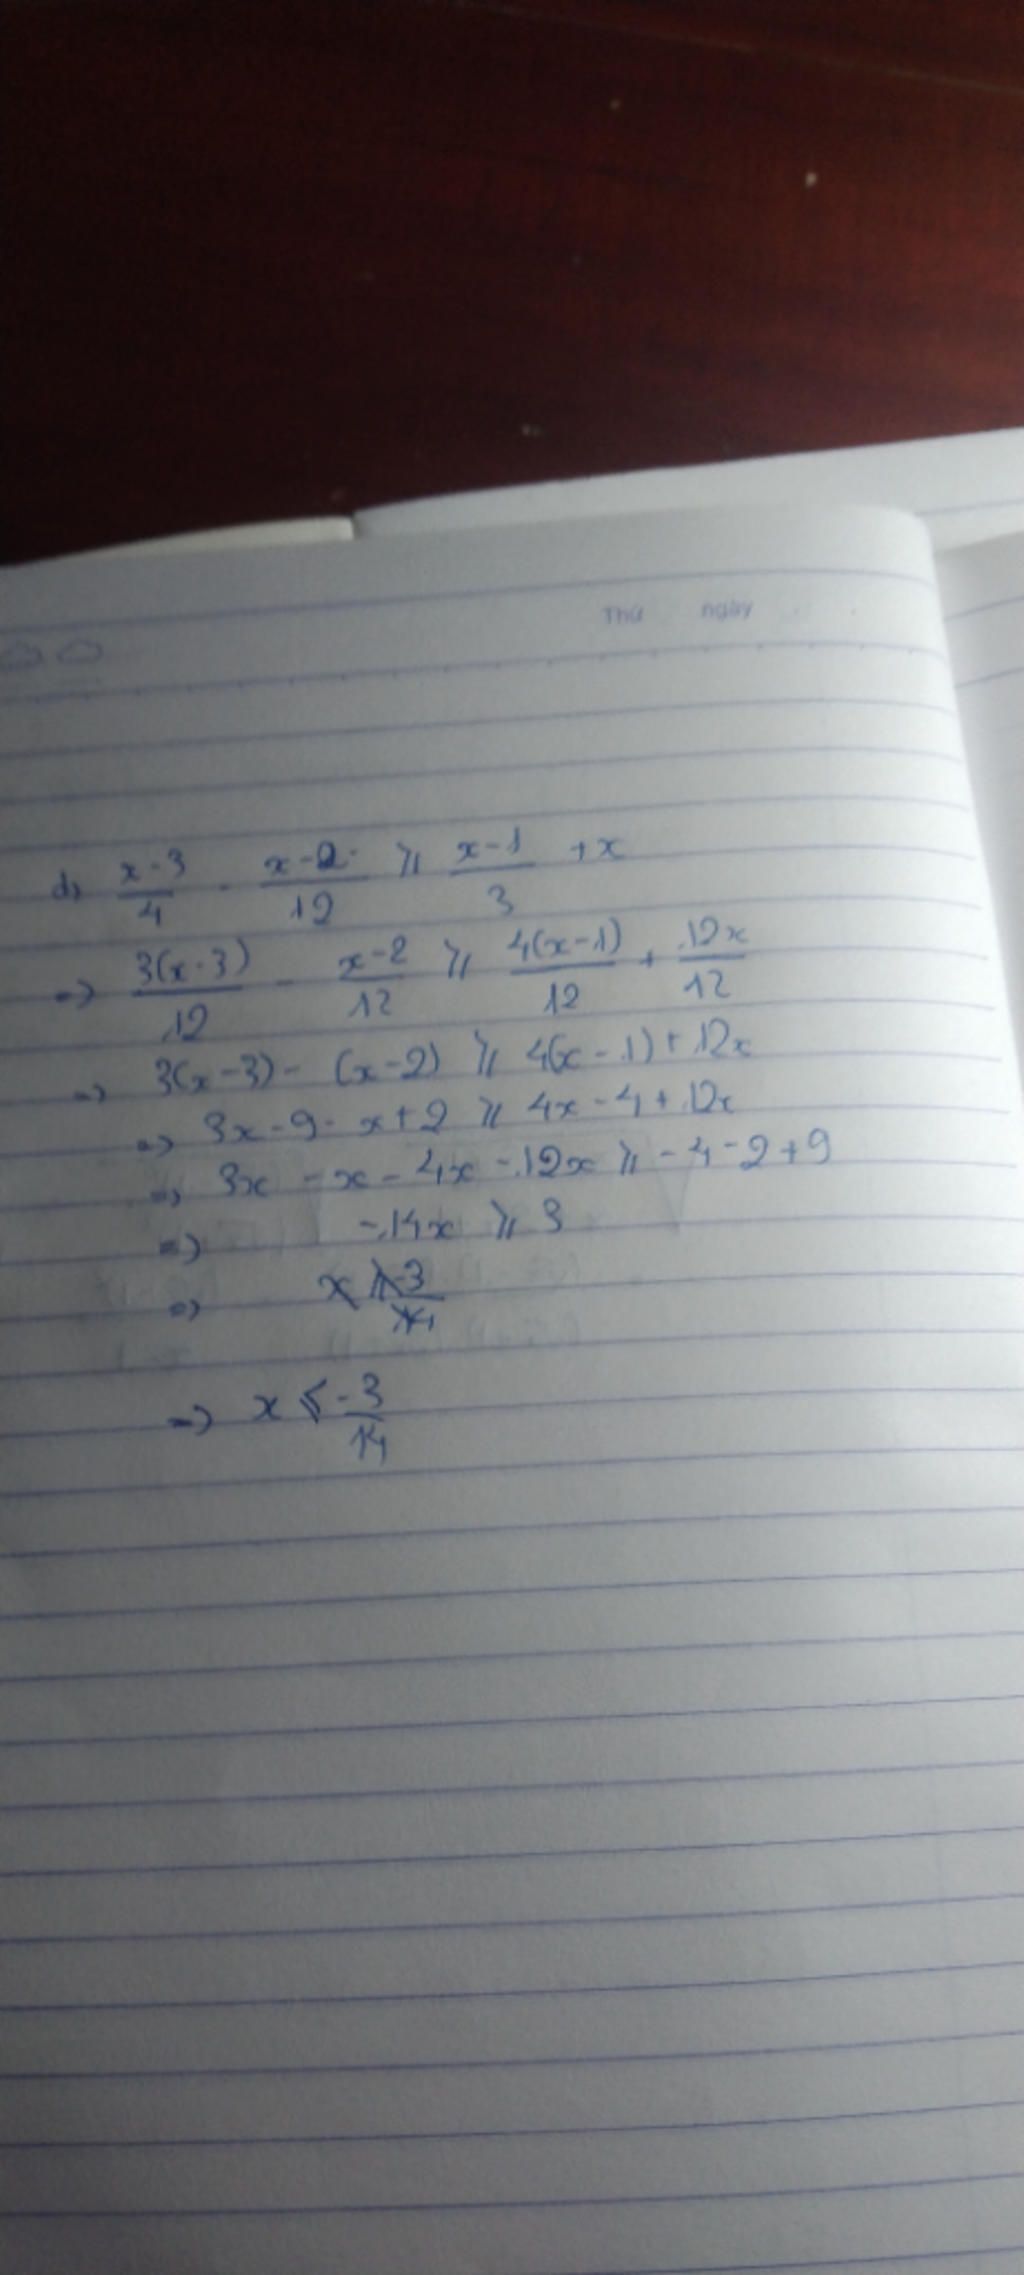 Thứ ngày
d, \frac{x-3}{4} - \frac{x-2}{12} ⩾ \frac{x-1}{3} + x
=> \frac{3(x-3)}{12} - \frac{x-2}{12} ⩾ \frac{4(x-1)}{12} + \frac{12x}{12}
=> 3(x-3) - (x-2) ⩾ 4(x-1) + 12x
=> 3x - 9 - x + 2 ⩾ 4x - 4 + 12x
=> 3x - x - 4x - 12x ⩾ -4 - 2 + 9
=> -14x ⩾ 3
=> x ⩾ \frac{-3}{14}
=> x ⩽ \frac{-3}{14}